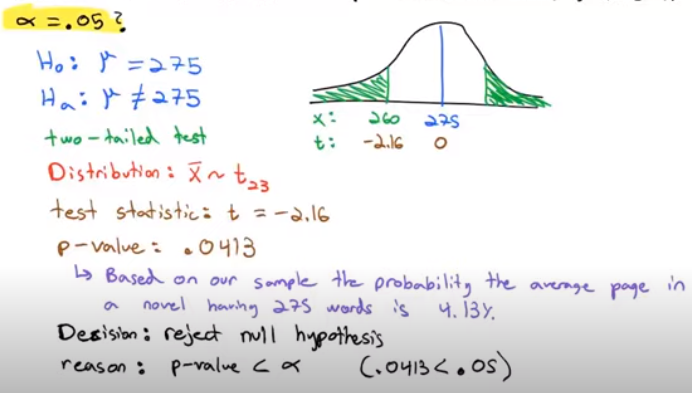 α = .05?
H₀: μ = 275
Hₐ: μ ≠ 275
two-tailed test
x: 260 275
t: -2.16 0
Distribution: x̄ ~ t₂₃
test statistic: t = -2.16
p-value: .0413
↳ Based on our sample the probability the average page in
a novel having 275 words is 4.13%.
Decision: reject null hypothesis
reason: p-value < α (.0413 < .05)